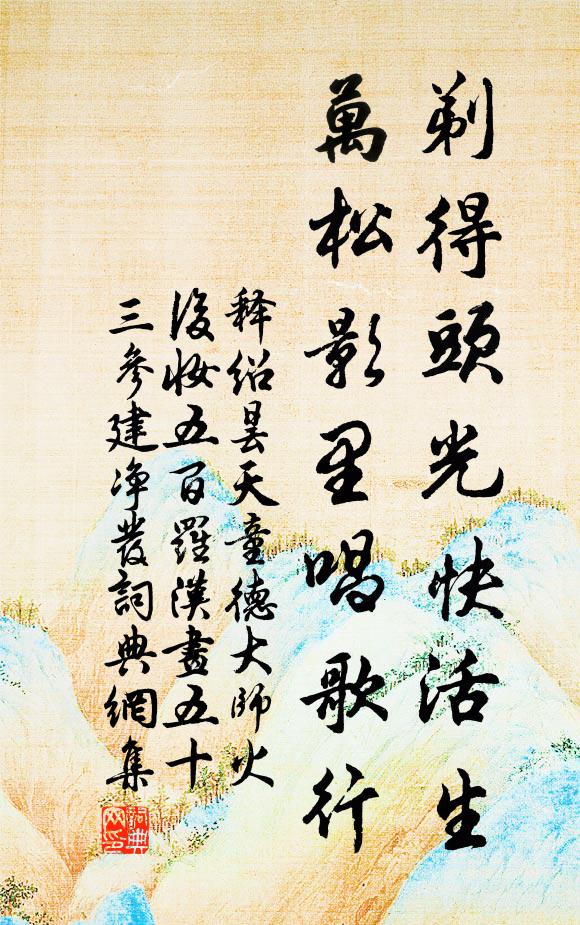 剃得頭光快活生
萬松影里唱歌行
释绍昙天童德大師火
後妝五百羅漢畫五十
三參建净發詞典網集
詞典
网印